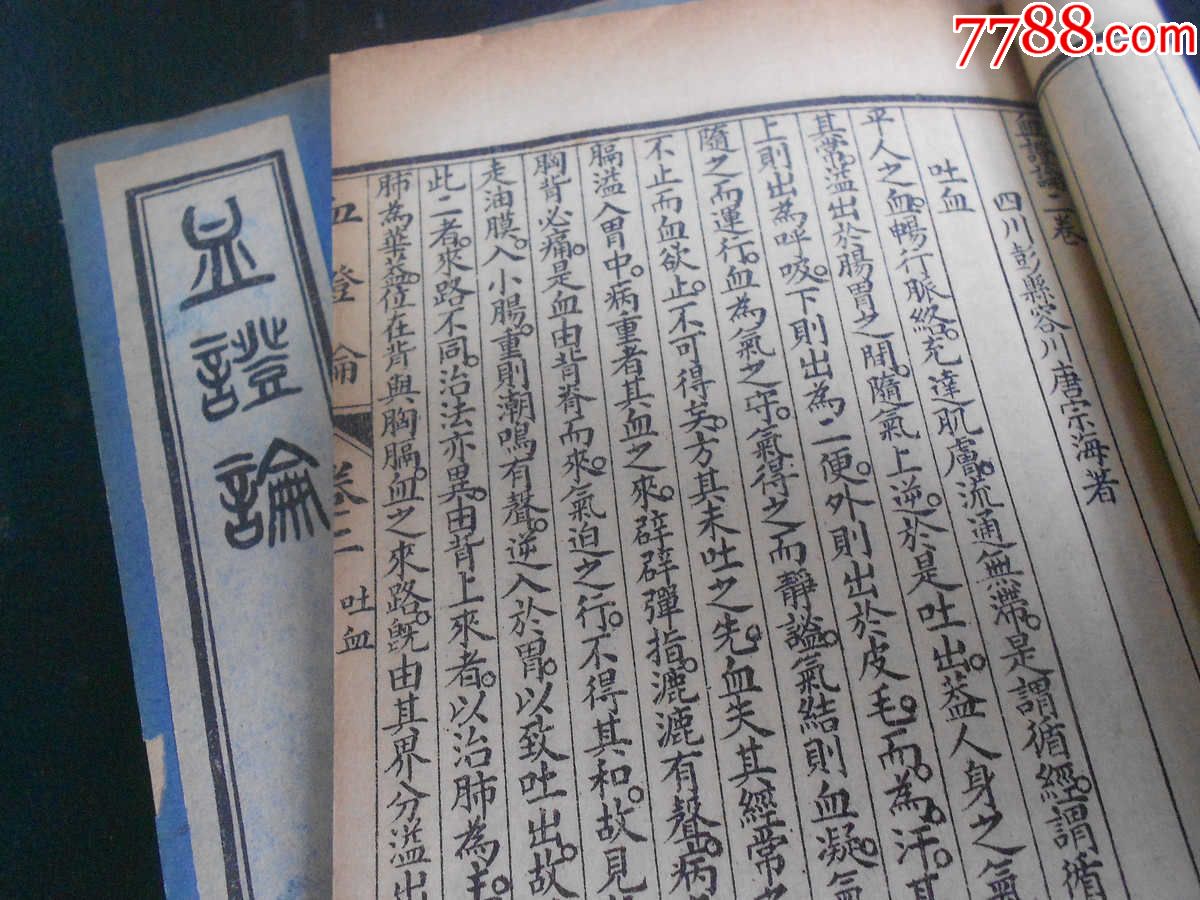 7788.com
血證論
血證論二卷
四川彭縣容川唐宗海著
吐血
平人之血。暢行脈絡。充達肌膚。流通無滯。是謂循經。謂循
其常。溢出於腸胃之間。隨氣上逆。於是吐出。蓋人身之氣
上則出為呼吸。下則出為二便。外則出於皮毛。而為汗。其
隨之而運行。血為氣之守。氣得之而靜謐。氣結則血凝。氣
不止而血欲止。不可得矣。方其未吐之先。血失其經常之
膈溢入胃中。病重者其血之來。辟辟彈指。漉漉有聲。病
胸背必痛。是血由背脊而來。氣迫之行。不得其和。故見
走油膜。入小腸。重則潮鳴有聲。逆入於胃。以致吐出。故
此二者。來路不同。治法亦異。由背上來者。以治肺為主。
肺為華蓋。位在背與胸膈。血之來路。既由其界分溢出
血證論
卷二
吐血